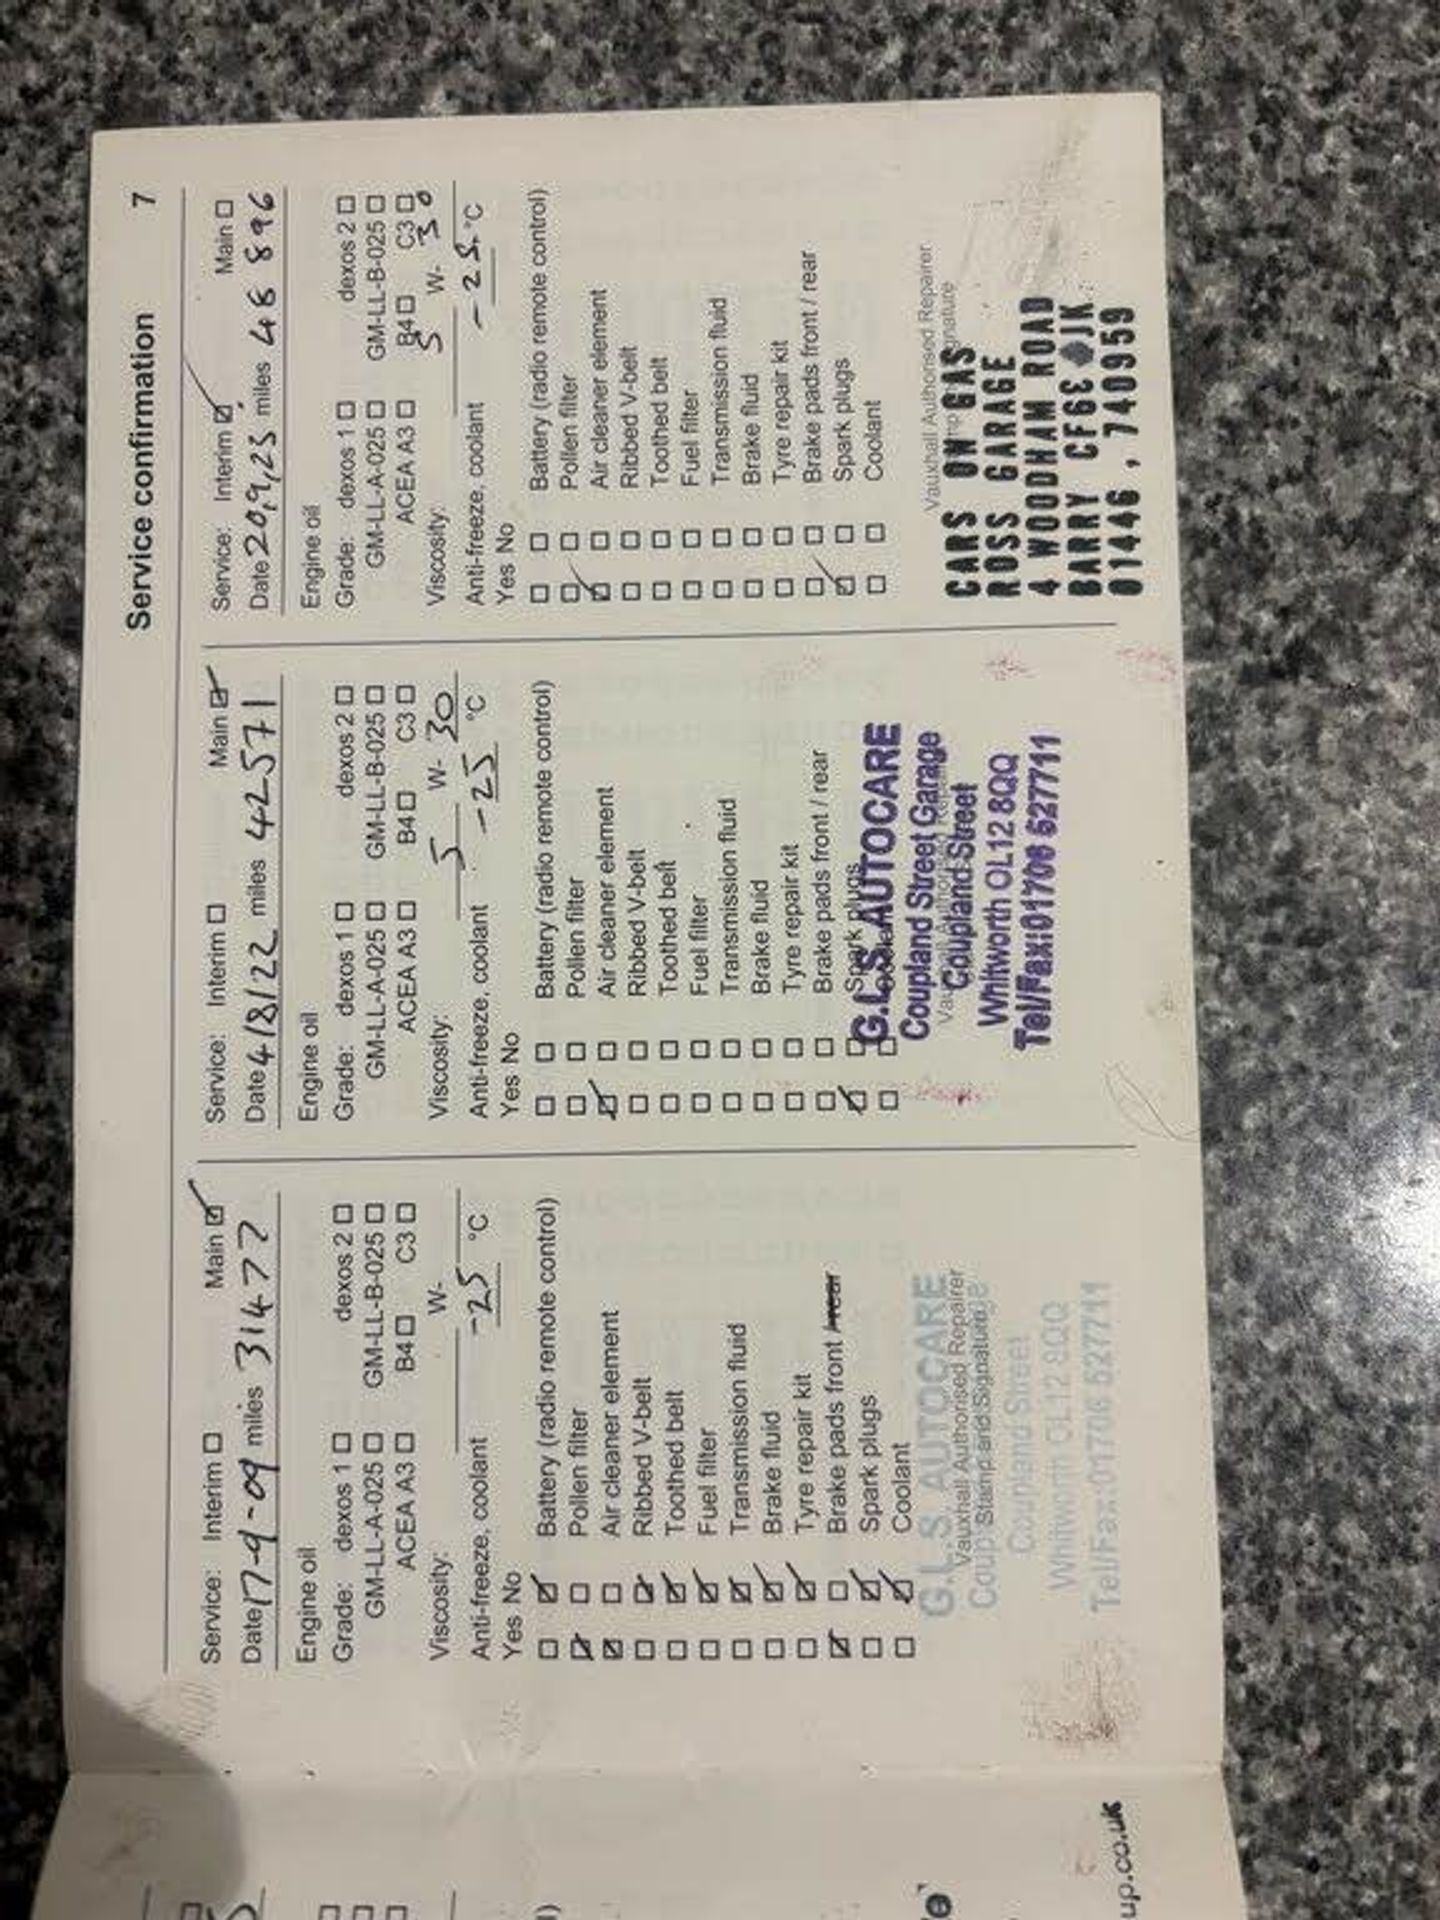 Service confirmation 7
Service: Interim Main
Date 17-9-09 miles 31477
Engine oil
Grade: dexos 1 dexos 2
GM-LL-A-025 GM-LL-B-025
ACEA A3 B4 C3
Viscosity: W-
Anti-freeze, coolant -25 °C
Yes No
Battery (radio remote control)
Pollen filter
Air cleaner element
Ribbed V-belt
Toothed belt
Fuel filter
Transmission fluid
Brake fluid
Tyre repair kit
Brake pads front / rear
Spark plugs
Coolant
Vauxhall Authorised Repairer
Stamp and Signature
G.L.S. AUTOCARE
Coupland Street
Whitworth OL12 8QQ
Tel/Fax:01706 527711
Service: Interim Main
Date 4/8/22 miles 42571
Engine oil
Grade: dexos 1 dexos 2
GM-LL-A-025 GM-LL-B-025
ACEA A3 B4 C3
Viscosity: 5 W- 30
Anti-freeze, coolant -25 °C
Yes No
Battery (radio remote control)
Pollen filter
Air cleaner element
Ribbed V-belt
Toothed belt
Fuel filter
Transmission fluid
Brake fluid
Tyre repair kit
Brake pads front / rear
Spark plugs
G.L.S. AUTOCARE
Coupland Street Garage
Coupland Street
Whitworth OL12 8QQ
Tel/Fax:01706 527711
Service: Interim Main
Date 20,9,23 miles 48 896
Engine oil
Grade: dexos 1 dexos 2
GM-LL-A-025 GM-LL-B-025
ACEA A3 B4 C3
Viscosity: 5 W- 30
Anti-freeze, coolant -25 °C
Yes No
Battery (radio remote control)
Pollen filter
Air cleaner element
Ribbed V-belt
Toothed belt
Fuel filter
Transmission fluid
Brake fluid
Tyre repair kit
Brake pads front / rear
Spark plugs
Coolant
Vauxhall Authorised Repairer
CARS ON GAS
ROSS GARAGE
4 WOODHAM ROAD
BARRY CF6E JK
01446 , 740959
up.co.uk